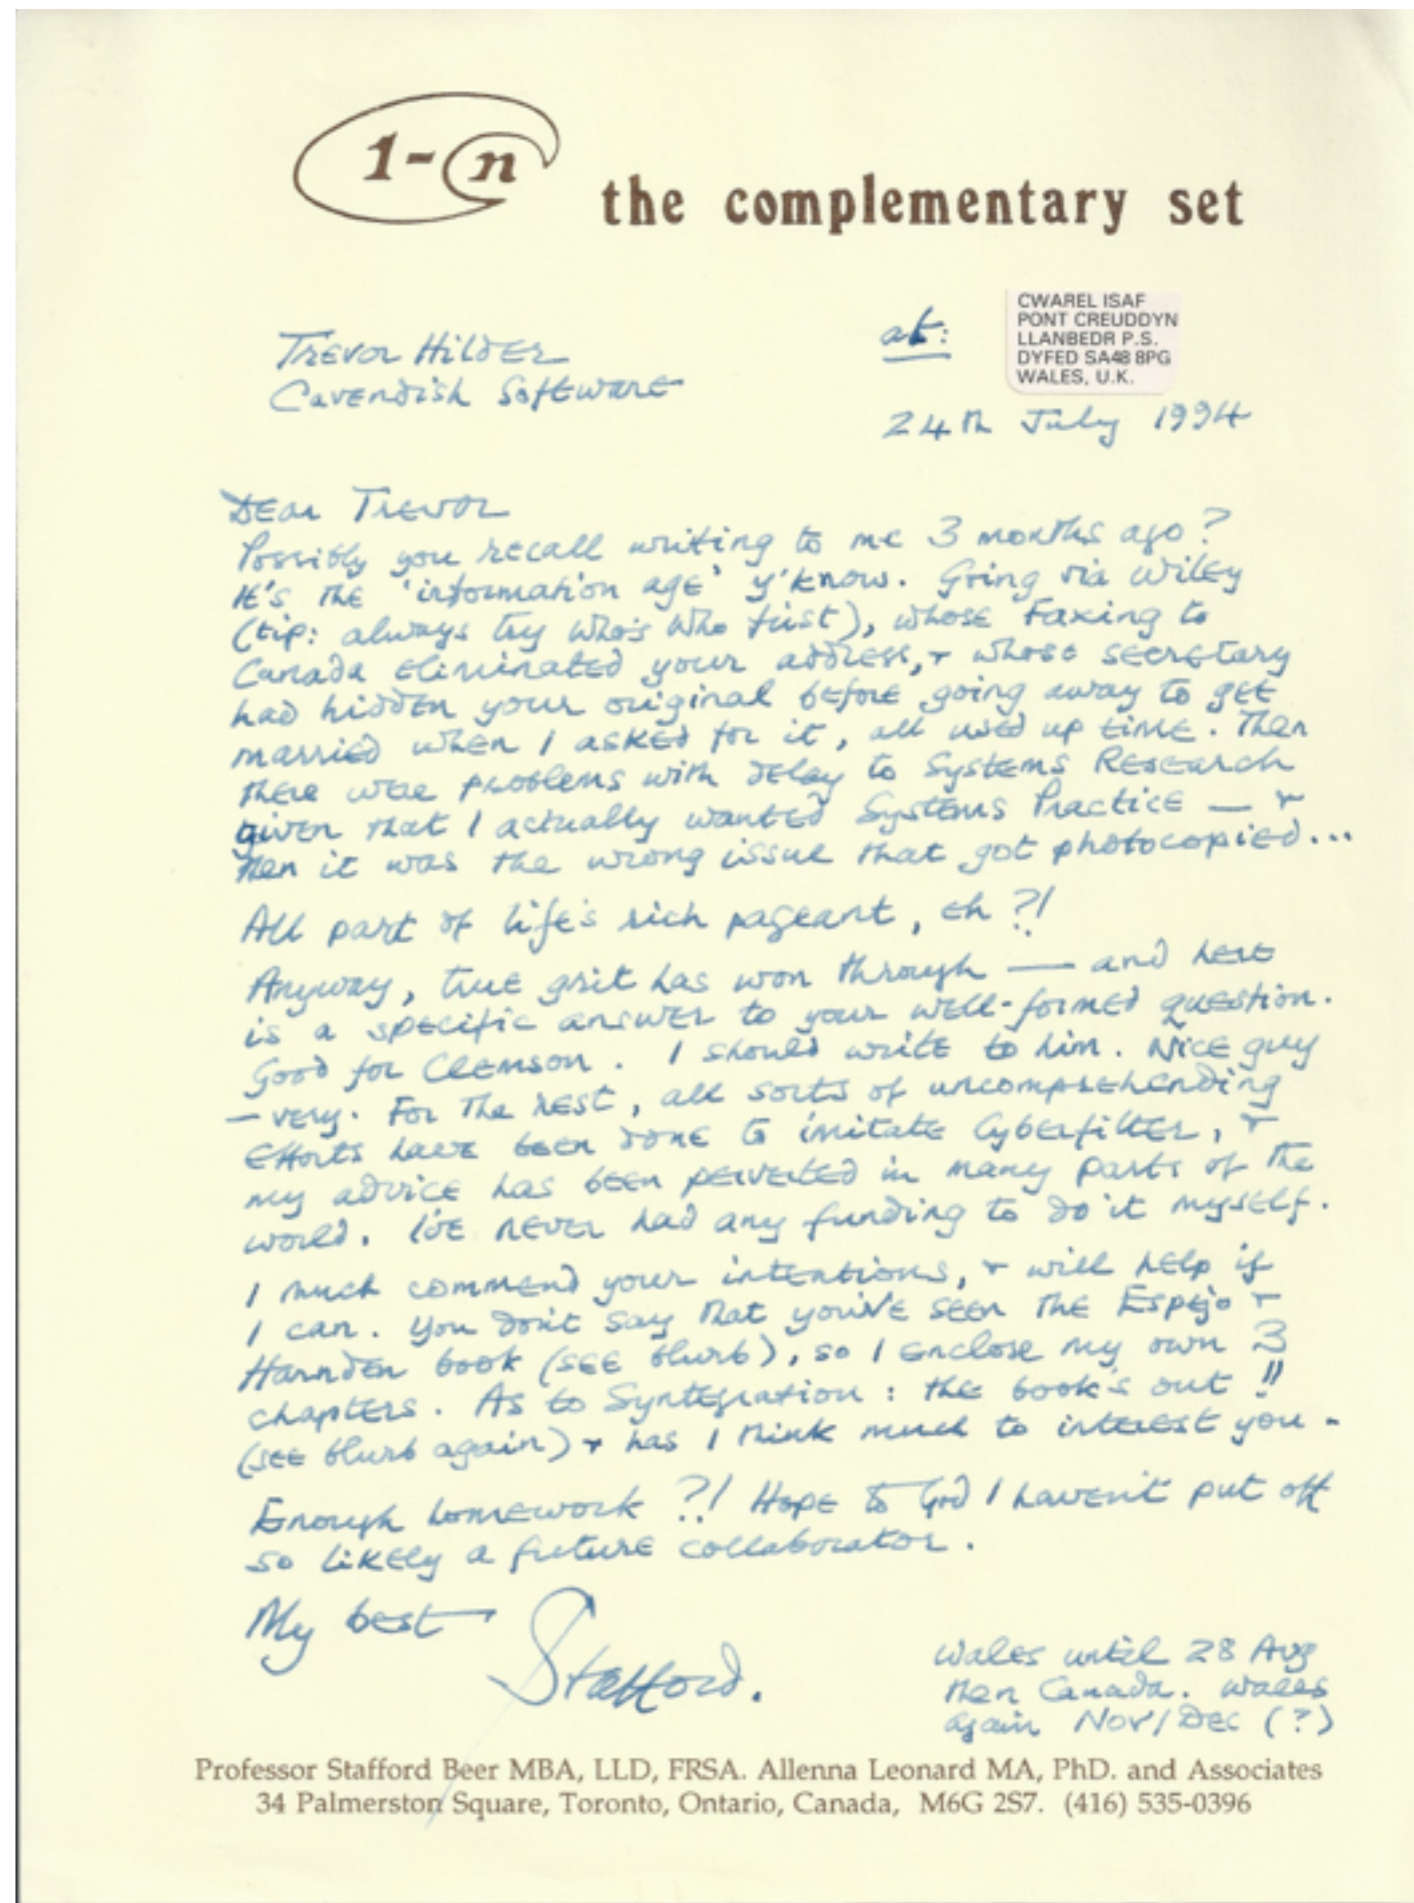 1-n
the complementary set
CWAREL ISAF
PONT CREUDDYN
LLANBEDR P.S.
DYFED SA48 8PG
WALES, U.K.
at:
Trevor Hilder
Cavendish Software
24th July 1994
Dear Trevor
Possibly you recall writing to me 3 months ago?
It's the 'information age' y'know. Going via Wiley
(tip: always try Who's Who first), whose Faxing to
Canada eliminated your address, + whose secretary
had hidden your original before going away to get
married when I asked for it, all used up time. Then
there were problems with delay to Systems Research
given that I actually wanted Systems Practice — +
then it was the wrong issue that got photocopied...
All part of life's rich pageant, eh ?!
Anyway, true grit has won through — and here
is a specific answer to your well-formed question.
Good for Clemson. I should write to him. Nice guy
— very. For the rest, all sorts of uncomprehending
efforts have been done to imitate Cyberfilter, +
my advice has been perverted in many parts of the
world. I've never had any funding to do it myself.
I much commend your intentions, + will help if
I can. You don't say that you've seen the Espejo +
Harnden book (see blurb), so I enclose my own 3
chapters. As to Syntegration: the book's out !!
(see blurb again) + has I think much to interest you -
Enough homework ?! Hope to God I haven't put off
so likely a future collaborator.
My best
Stafford.
Wales until 28 Aug
then Canada. Wales
again Nov/Dec (?)
Professor Stafford Beer MBA, LLD, FRSA. Allenna Leonard MA, PhD. and Associates
34 Palmerston Square, Toronto, Ontario, Canada, M6G 2S7. (416) 535-0396